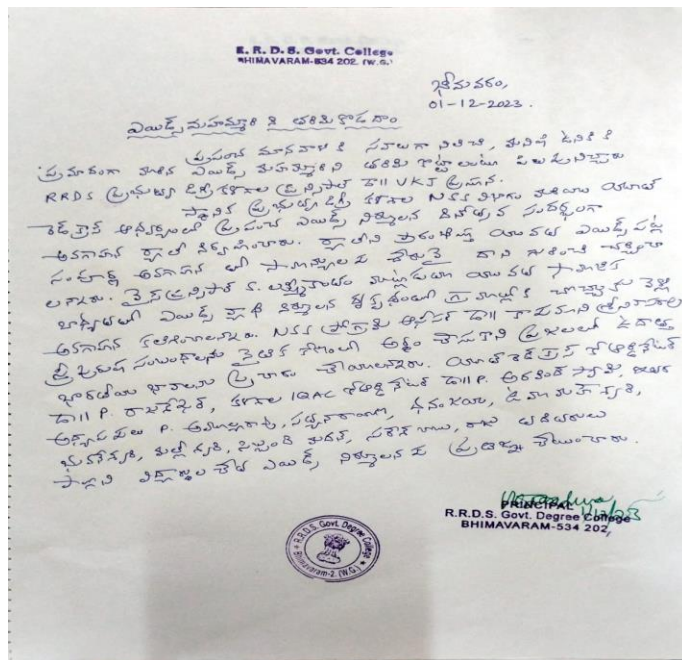 R. R. D. S. Govt. College
BHIMAVARAM-534 202. (W.G.)
భీమవరం,
01-12-2023.
ఎయిడ్స్ మహమ్మారి ని తరిమికొడదాం
ప్రపంచ మానవాళి కి సవాలుగా నిలిచి, మనిషి ఉనికి కి
ప్రమాదంగా మారిన ఎయిడ్స్ మహమ్మారిని తరిమి కొట్టాలంటూ పిలుపునిచ్చారు
RRDS ప్రభుత్వ డిగ్రీ కళాశాల ప్రిన్సిపాల్ డా॥ VKJ ప్రసూన.
స్థానిక ప్రభుత్వ డిగ్రీ కళాశాల NSS విభాగం మరియు యూత్
రెడ్ క్రాస్ ఆధ్వర్యంలో ప్రపంచ ఎయిడ్స్ నిర్మూలన దినోత్సవ సందర్భంగా
అవగాహన ర్యాలీ నిర్వహించారు. ర్యాలీని ప్రారంభిస్తూ యువత ఎయిడ్స్ పట్ల
సంపూర్ణ అవగాహన తో దాని గురించి చర్చించా
లన్నారు. వైస్ ప్రిన్సిపాల్ యువత సామాజిక
బాధ్యతతో ఎయిడ్స్ వ్యాధి నిర్మూలన గ్రామాల్లోకి వెళ్లి
అవగాహన కలిగించాలన్నారు. NSS ప్రోగ్రామ్ ఆఫీసర్ డా॥
స్త్రీ పురుష సంబంధాలను నైతిక కోణంలో అర్థం చేసుకొని ప్రజలలో ఉదాత్త
భారతీయ భావాలను ప్రచారం చేయాలన్నారు. యూత్ రెడ్ క్రాస్ కోఆర్డినేటర్
డా॥ P. రాజశేఖర్, కళాశాల IQAC కోఆర్డినేటర్ డా॥ P. అరవింద్ స్వామి, ఇతర
అధ్యాపకులు P. సత్యనారాయణ, ధనంజయ, ఉమా మహేశ్వరి,
భువనేశ్వరి, మల్లీశ్వరి, రాజు తదితరులు
పాల్గొని విద్యార్థుల చేత ఎయిడ్స్ నిర్మూలనకు ప్రతిజ్ఞ చేయించారు.
PRINCIPAL
R.R.D.S. Govt. Degree College
BHIMAVARAM-534 202,
R.R.D.S. Govt. Degree College
Bhimavaram-2. (W.G.)